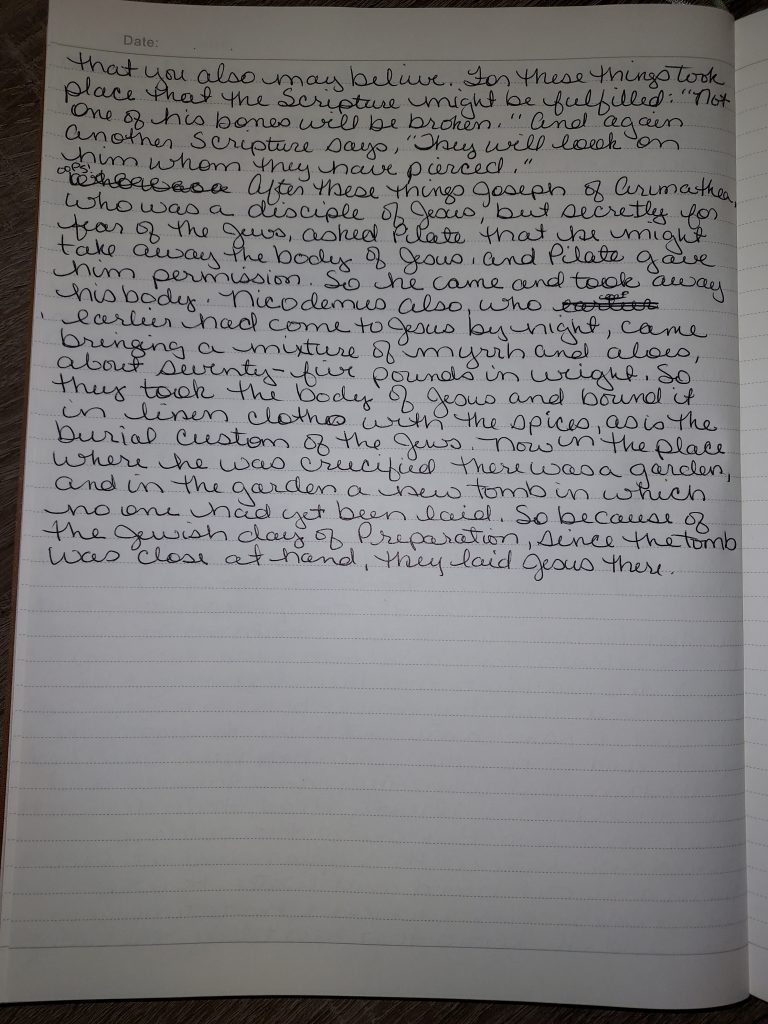 Date:
that you also may belive. For these things took
place that the Scripture might be fulfilled: "Not
one of his bones will be broken." And again
another Scripture says, "They will look on
him whom they have pierced."
oops!
After these things Joseph of Arimathea,
who was a disciple of Jesus, but secretly for
fear of the Jews, asked Pilate that he might
take away the body of Jesus, and Pilate gave
him permission. So he came and took away
his body. Nicodemus also, who earlier oops
earlier had come to Jesus by night, came
bringing a mixture of myrrh and aloes,
about seventy-five pounds in weight. So
they took the body of Jesus and bound it
in linen cloths with the spices, as is the
burial custom of the Jews. Now in the place
where he was crucified there was a garden,
and in the garden a new tomb in which
no one had yet been laid. So because of
the Jewish day of Preparation, since the tomb
was close at hand, they laid Jesus there.